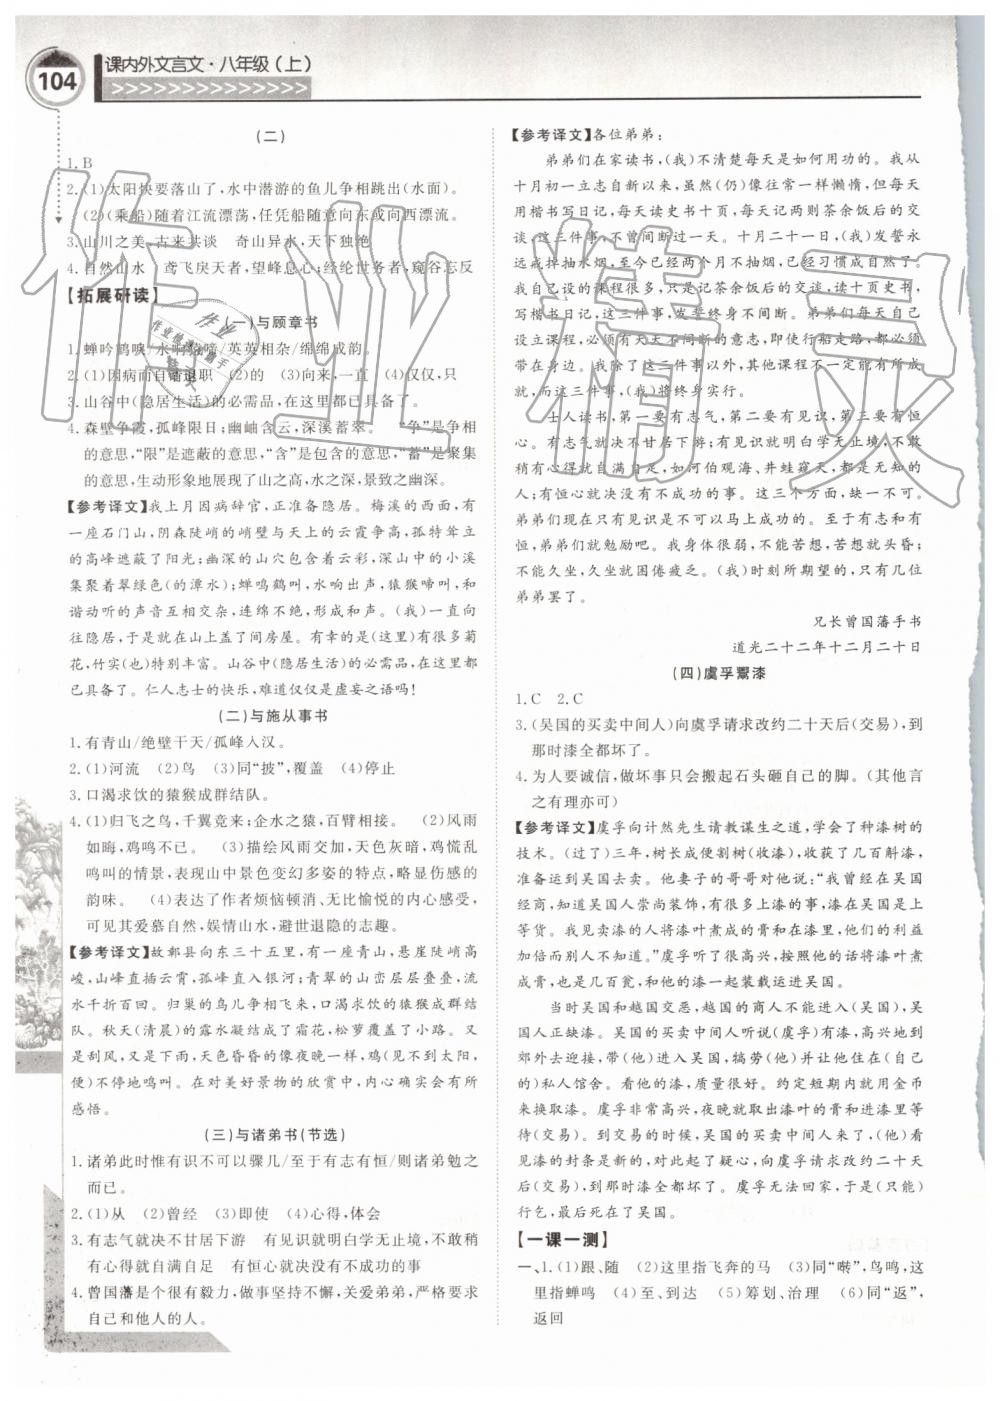 104
课内外文言文·八年级(上)
(二)
1. B
2. (1)太阳快要落山了,水中潜游的鱼儿争相跳出(水面)。
(2)(乘船)随着江流漂荡,任凭船随意向东或向西漂流。
3. 山川之美,古来共谈 奇山异水,天下独绝
4. 自然山水 鸢飞戾天者,望峰息心;经纶世务者,窥谷忘反
【拓展研读】
(一)与顾章书
1. 蝉吟鹤唳/水响猿啼/英英相杂/绵绵成韵。
2. (1)因病而自请退职 (2)的 (3)向来,一直 (4)仅仅,只
3. 山谷中(隐居生活)的必需品,在这里都已具备了。
4. 森壁争霞,孤峰限日;幽岫含云,深溪蓄翠。 “争”是争相
的意思,“限”是遮蔽的意思,“含”是包含的意思,“蓄”是聚集
的意思,生动形象地展现了山之高,水之深,景致之幽深。
【参考译文】我上月因病辞官,正准备隐居。梅溪的西面,有
一座石门山,阴森陡峭的峭壁与天上的云霞争高,孤特耸立
的高峰遮蔽了阳光;幽深的山穴包含着云彩,深山中的小溪
集聚着翠绿色(的潭水);蝉鸣鹤叫,水响出声,猿猴啼叫,和
谐动听的声音互相交杂,连绵不绝,形成和声。(我)一直向
往隐居,于是就在山上盖了间房屋。有幸的是(这里)有很多菊
花,竹实(也)特别丰富。山谷中(隐居生活)的必需品,在这里都
已具备了。仁人志士的快乐,难道仅仅是虚妄之语吗!
(二)与施从事书
1. 有青山/绝壁干天/孤峰入汉。
2. (1)河流 (2)鸟 (3)同“披”,覆盖 (4)停止
3. 口渴求饮的猿猴成群结队。
4. (1)归飞之鸟,千翼竞来;企水之猿,百臂相接。 (2)风雨
如晦,鸡鸣不已。 (3)描绘风雨交加,天色灰暗,鸡慌乱
鸣叫的情景,表现山中景色变幻多姿的特点,略显伤感的
韵味。 (4)表达了作者烦恼顿消,无比愉悦的内心感受,
可见其爱慕自然,娱情山水,避世退隐的志趣。
【参考译文】故鄣县向东三十五里,有一座青山,悬崖陡峭高
峻,山峰直插云霄,孤峰直入银河;青翠的山峦层层叠叠,流
水千折百回。归巢的鸟儿争相飞来,口渴求饮的猿猴成群结
队。秋天(清晨)的露水凝结成了霜花,松萝覆盖了小路。又
是刮风,又是下雨,天色昏昏的像夜晚一样,鸡(见不到太阳,
便)不停地鸣叫。在对美好景物的欣赏中,内心确实会有所
感悟。
(三)与诸弟书(节选)
1. 诸弟此时惟有识不可以骤几/至于有志有恒/则诸弟勉之
而已。
2. (1)从 (2)曾经 (3)即使 (4)心得,体会
3. 有志气就决不甘居下游 有见识就明白学无止境,不敢稍
有心得就自满自足 有恒心就决没有不成功的事
4. 曾国藩是个很有毅力,做事坚持不懈,关爱弟弟,严格要求
自己和他人的人。
【参考译文】各位弟弟:
弟弟们在家读书,(我)不清楚每天是如何用功的。我从
十月初一立志自新以来,虽然(仍)像过往一样懒惰,但每天
用楷书写日记,每天读史书十页,每天记两则茶余饭后的交
谈,这三件事,不曾间断过一天。十月二十一日,(我)发誓永
远戒掉抽水烟,至今已经两个月不抽烟了,已经习惯成自然了。
我自己设的课程很多,只是记茶余饭后的交谈、读十页史书、
写楷书日记,这三件事发誓终身不间断。弟弟们每人自己设
立课程,必须有天天不间断的意志,即使行船走路,都要将其
带在身边。我除了这三件事外,其他课程不一定能有所成
就,而这三件事,(我)将终身实行。
士人读书,第一要有志气,第二要有见识,第三要有恒
心。有志气就决不甘居下游;有见识就明白学无止境,不敢
稍有心得就自满自足,如河伯观海,井蛙窥天,都是无知的
人;有恒心就决没有不成功的事。这三个方面,缺一不可。
弟弟们现在只有见识是不可以马上成功的。至于有志和有
恒,弟弟们就勉励吧。我身体很弱,不能苦想,苦想就头昏;
不能久坐,久坐就困倦疲乏。(我)时刻所期望的,只有几位
弟弟罢了。
兄长曾国藩手书
道光二十二年十二月二十日
(四)虞孚鬻漆
1. C 2. C
3. (吴国的买卖中间人)向虞孚请求改约二十天后(交易),到
那时漆全都坏了。
4. 为人要诚信,做坏事只会搬起石头砸自己的脚。(其他言
之有理亦可)
【参考译文】虞孚向计然先生请教谋生之道,学会了种漆树的
技术。(过了)三年,树长成便割树(收漆),收获了几百斛漆,
准备运到吴国去卖。他妻子的哥哥对他说:“我曾经在吴国
经商,知道吴国人崇尚装饰,有很多漆的事情,漆在吴国是上
等货。我见卖漆的人将漆叶煮成的膏和在漆里,他们的利益
加倍而别人不知道。”虞孚听了很高兴,按照他的话将漆叶煮
成膏,也是几百瓮,和他的漆一起装载运进吴国。
当时吴国和越国交恶,越国的商人不能进入(吴国),吴
国人正缺漆。吴国的买卖中间人听说(虞孚)有漆,高兴地到
郊外去迎接,带(他)进入吴国,犒劳(他)并让他住在(自己
的)私人馆舍。看他的漆,质量很好。约定短期内就用金币
来换取漆。虞孚非常高兴,夜晚就取出漆叶的膏和进漆里等
待(交易)。到交易的时候,吴国的买卖中间人来了,(他)看
见漆的封条是新的,对此起了疑心,向虞孚请求改约二十天
后(交易),到那时漆全都坏了。虞孚无法回家,于是(只能)
行乞,最后死在了吴国。
【一课一测】
一、1. (1)跟、随 (2)这里指飞奔的马 (3)同“啭”,鸟鸣,这
里指蝉鸣 (4)至、到达 (5)筹划、治理 (6)同“返”,
返回